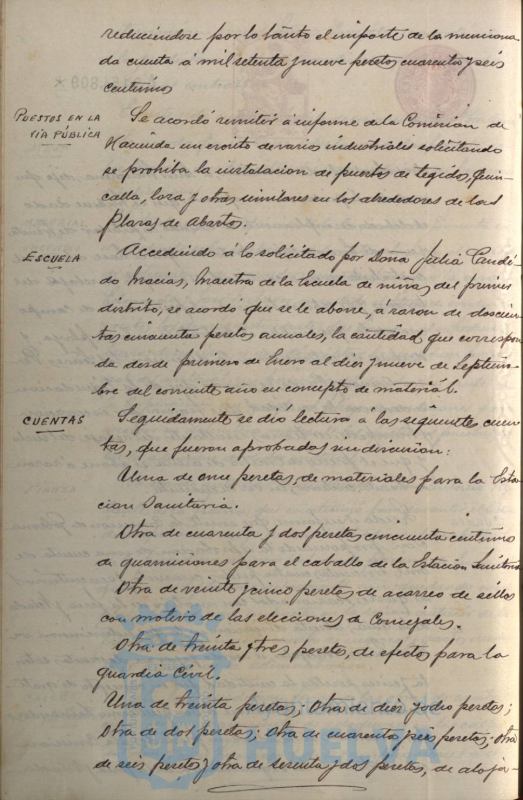 reduciéndose por lo tanto el importe de la menciona-
da cuenta á mil setenta y nueve pesetas cuarenta y seis
centimos
PUESTOS EN LA
VIA PÚBLICA
Se acordó remitir á informe de la Comision de
Hacienda un escrito de varios industriales solicitando
se prohiba la instalacion de puestos de tegidos, quin-
calla, loza y otros similares en los alrededores de las
Plazas de Abastos.
ESCUELA
Accediendo á lo solicitado por Doña Julia Candé-
do Macías, Maestra de la Escuela de niñas del primer
distrito, se acordó que se le abone, á razon de doscien-
tas cincuenta pesetas anuales, la cantidad que correspon-
da desde primero de Enero al diez y nueve de Septiem-
bre del corriente año en concepto de material.
CUENTAS
Seguidamente se dió lectura á las siguientes cuen-
tas, que fueron aprobadas sin discusion:
Una de once pesetas, de materiales para la Esta-
cion Sanitaria.
Otra de cuarenta y dos pesetas cincuenta centimos
de guarniciones para el caballo de la Estacion Sanitaria
Otra de veinte y cinco pesetas de acarreo de sillas
con motivo de las elecciones de Concejales.
Otra de treinta y tres pesetas, de efectos para la
guardia Civil.
Una de treinta pesetas; Otra de diez y ocho pesetas;
Otra de dos pesetas; Otra de cuarenta y seis pesetas; Otra
de seis pesetas y otra de sesenta y dos pesetas, de aloja-
HUELVA